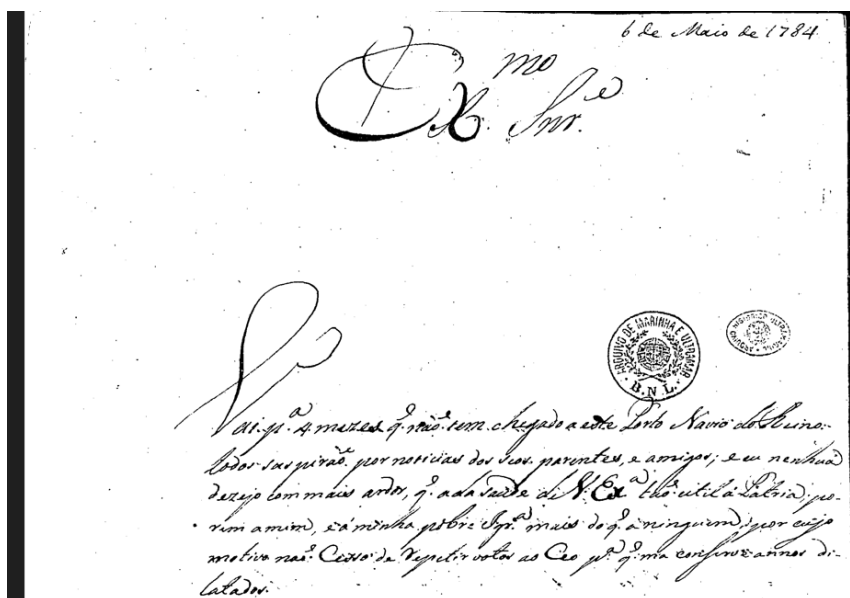 6 de Maio de 1784
Ex.mo Snr.e
ARQUIVO DE MARINHA E ULTRAMAR
B. N. L.
Vai p.a 4 mezes q. não tem chegado a este Porto Navio do Reino:
todos suspirão por noticias dos seos parentes, e amigos; e eu nenhuã
dezejo com mais ardor, q. a da saude de V. Ex.a tão util á Patria; po-
rem a mim, e á minha pobre Igr.a mais do q. á ninguem; por cujo
motivo não Cesso de repetir votos ao Ceo p.a q. ma conserve annos di-
latados.